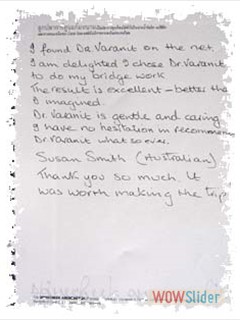 I found Dr Varanit on the net.
I am delighted I chose Dr. Varanit
to do my bridge work
The result is excellent - better tha
I imagined.
Dr. Varanit is gentle and caring
I have no hesitation in recommend
Dr. Varanit what so ever.
Susan Smith (Australian)
Thank you so much. It
was worth making the trip
WOWSlider